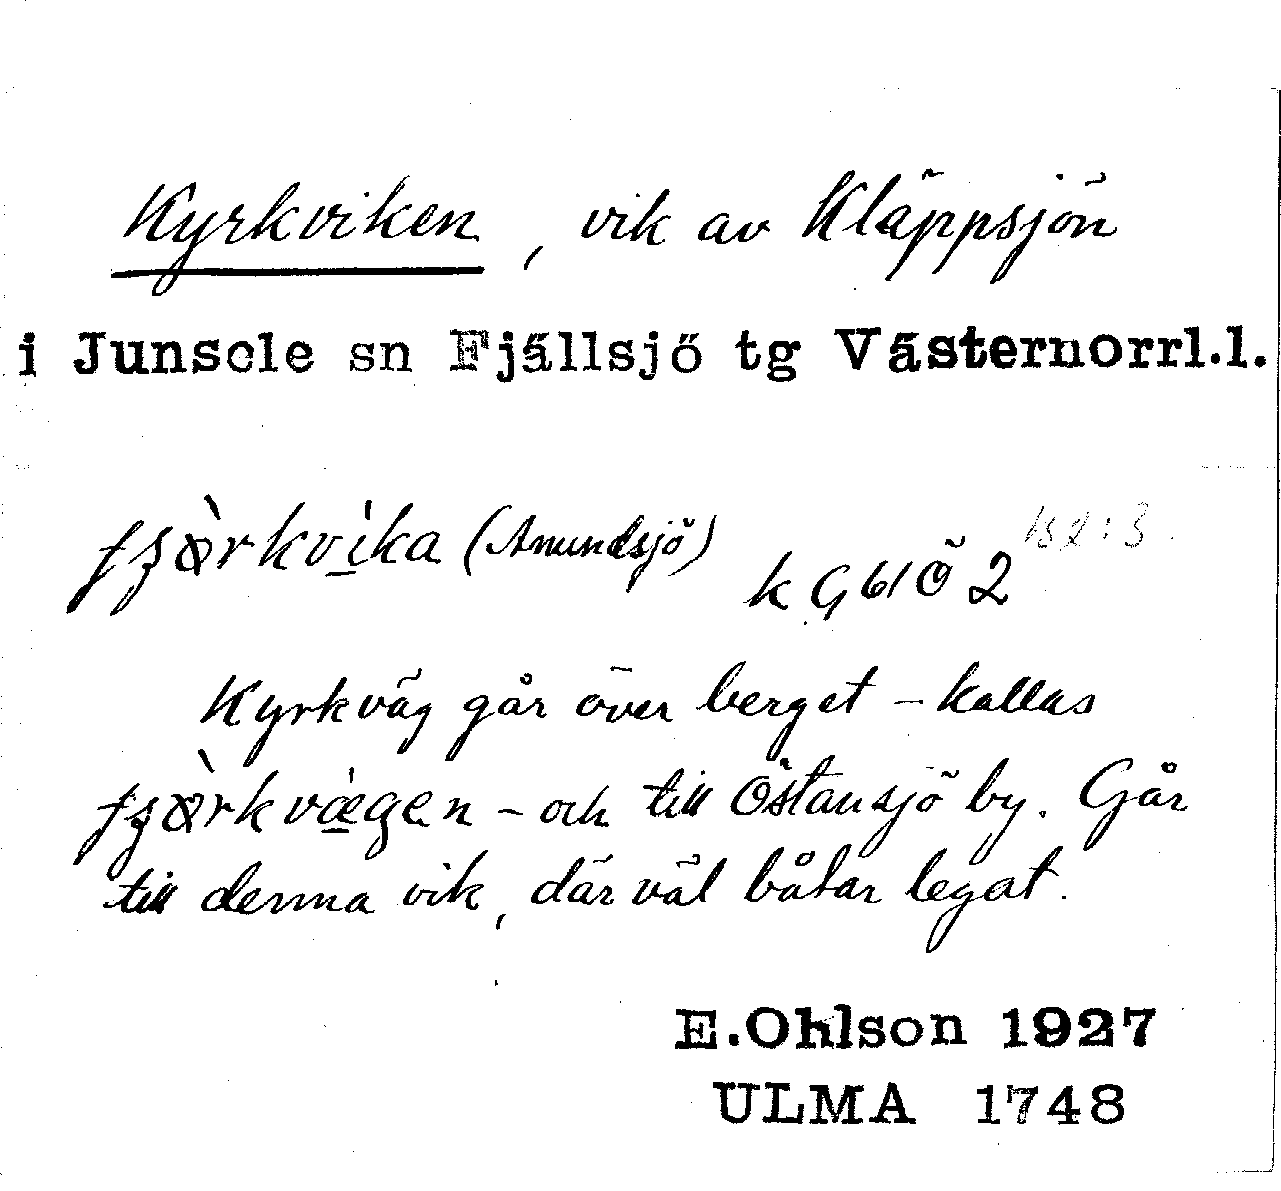 Kyrkviken, vik av Kläppsjön
i Junsele sn Fjällsjö tg Västernorrl.l.
(Anundsjö) k G61Ö2
Kyrkväg går över berget – kallas
– och till Östansjö by. Går
till denna vik, där väl båtar legat.
E.Ohlson 1927
ULMA 1748